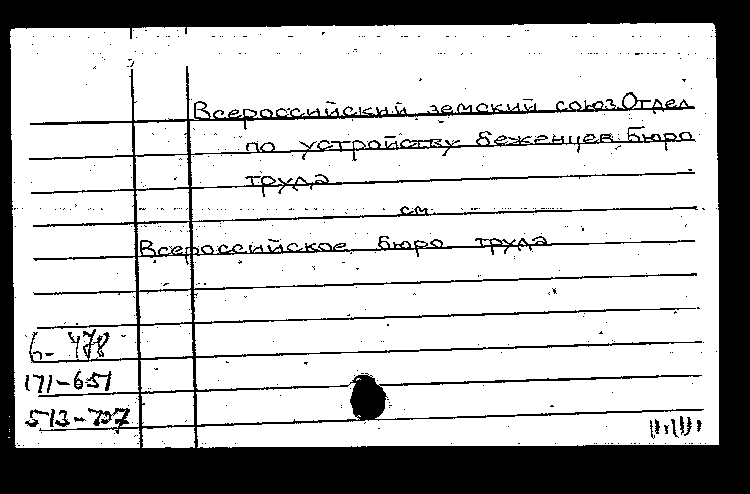 Всероссийский земский союз. Отдел
по устройству беженцев. Бюро
труда
см.
Всероссийское бюро труда
6-478
171-651
513-727